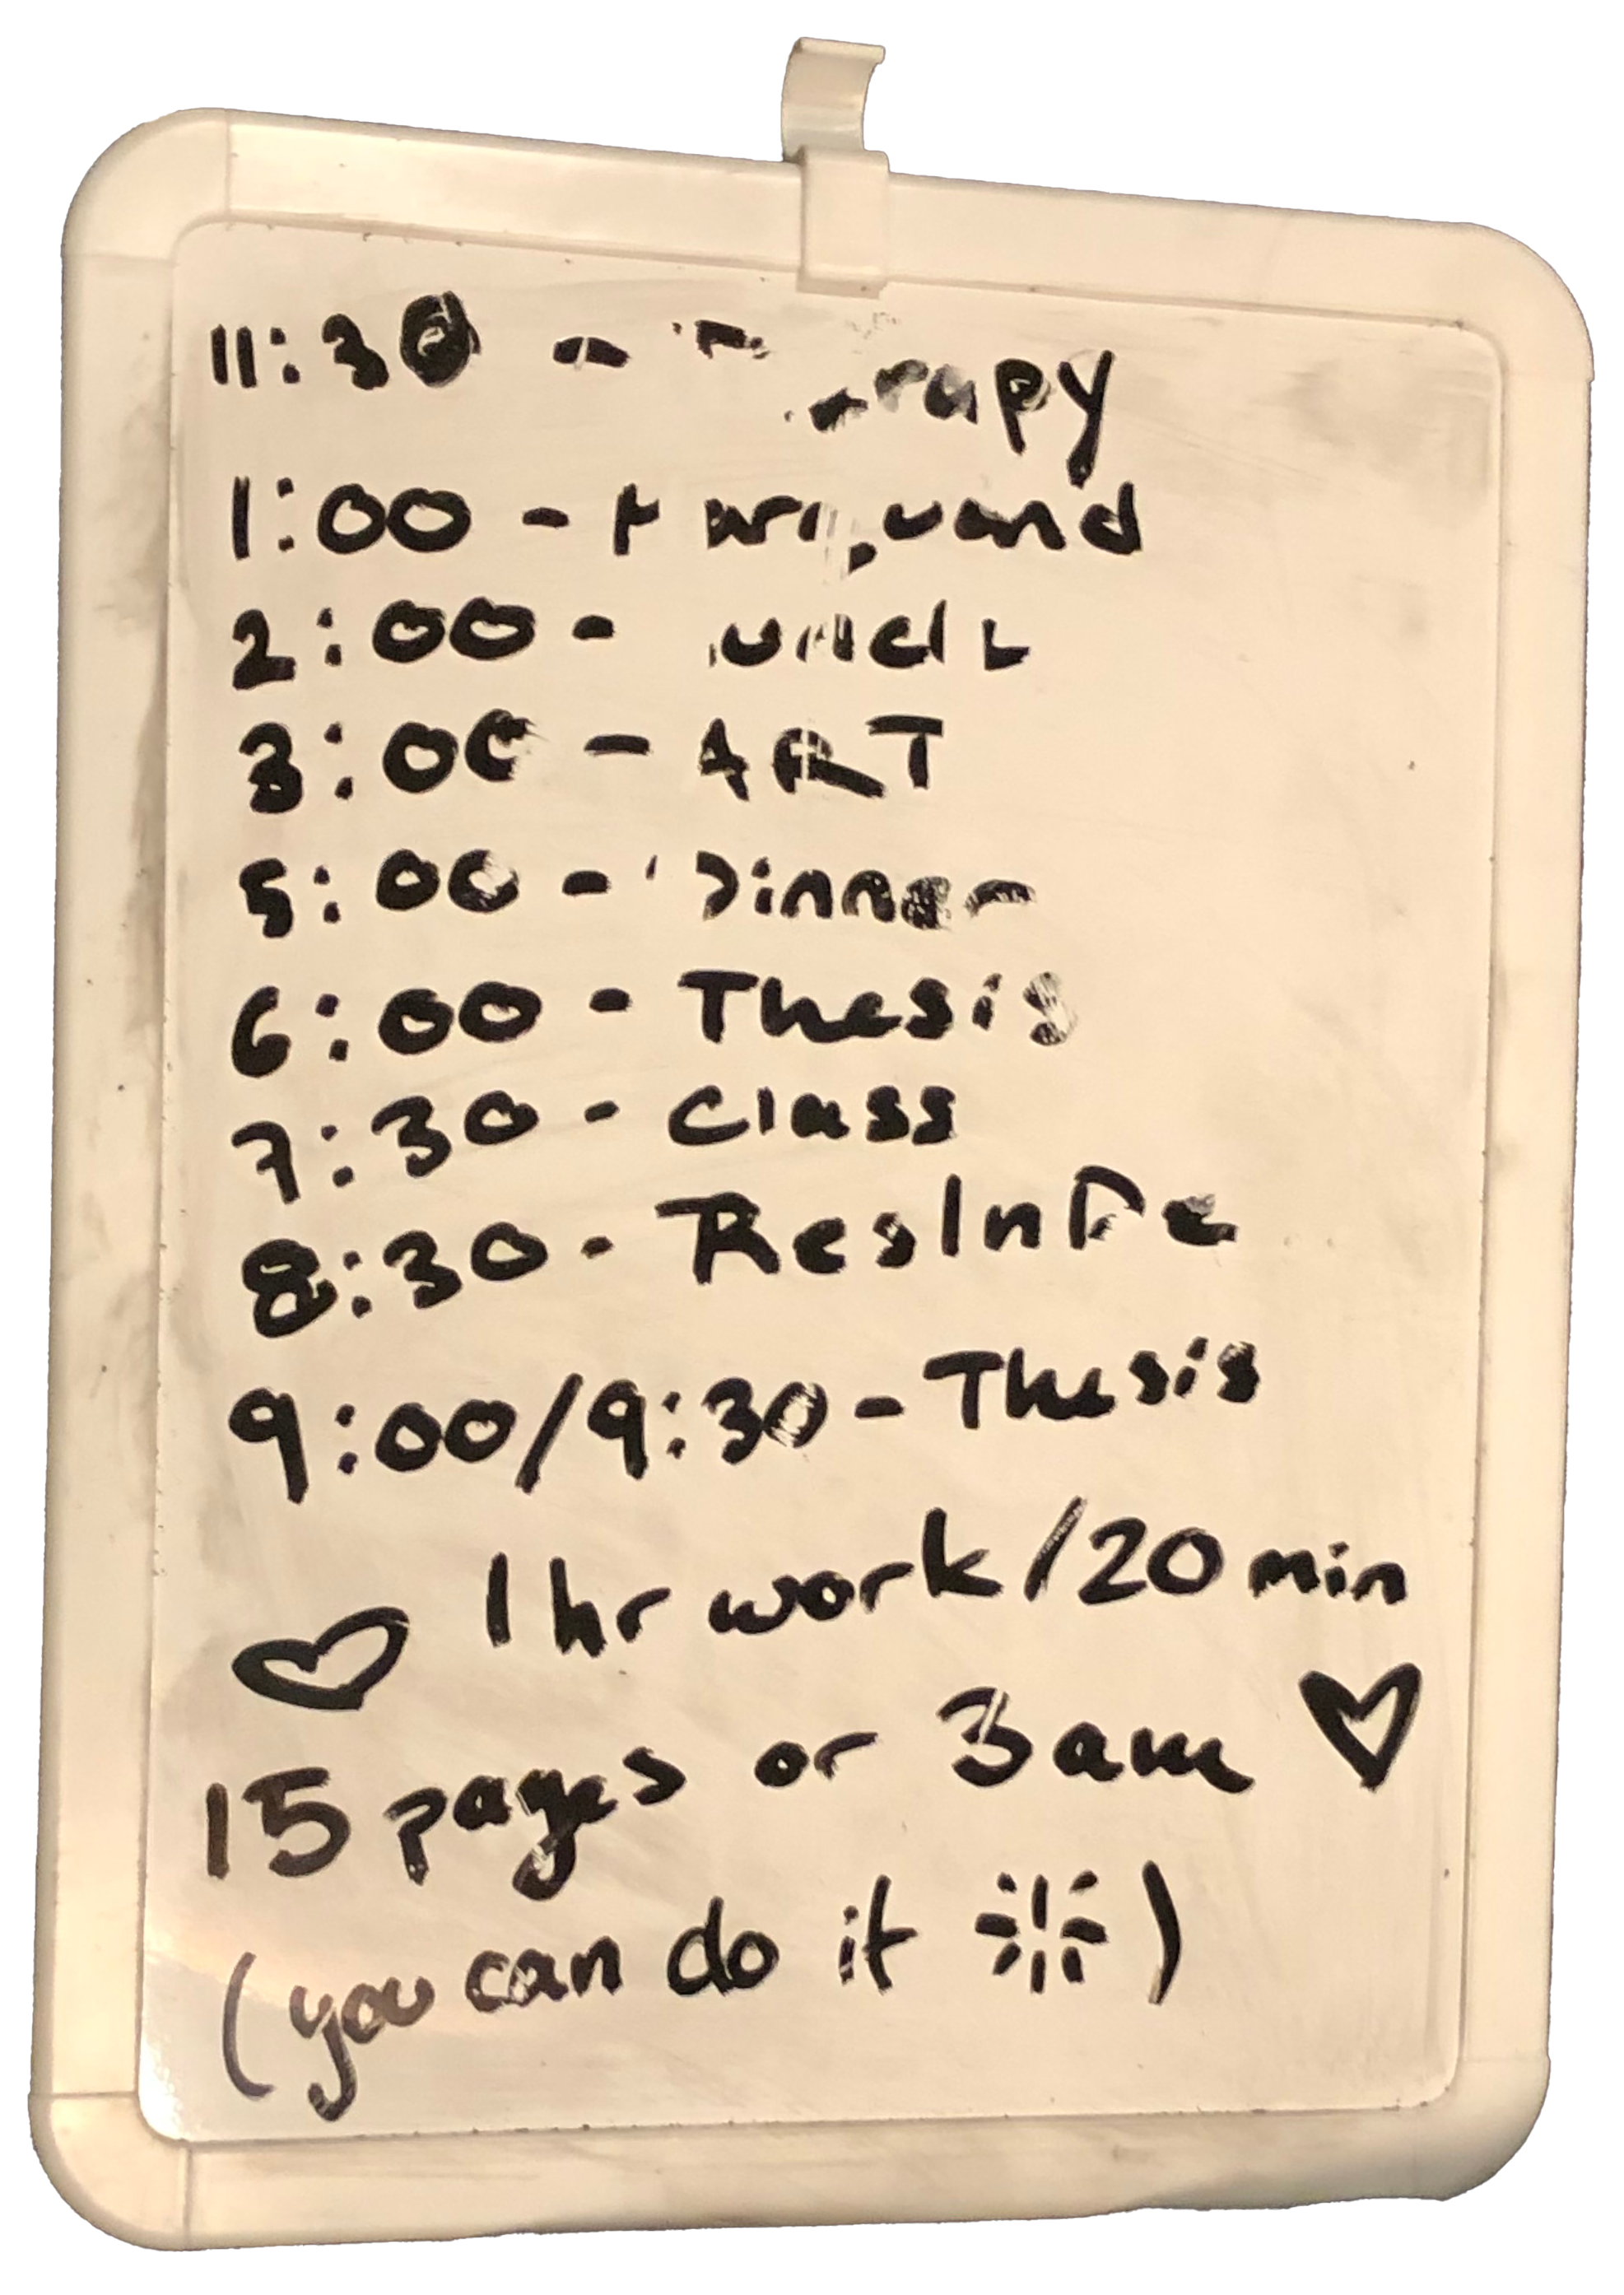 11:30 -
1:00 -
2:00 -
3:00 - ART
5:00 - Dinner
6:00 - Thesis
7:30 - Class
8:30 -
9:00/9:30 - Thesis
1 hr work/20 min
15 pages or 3am
(you can do it)